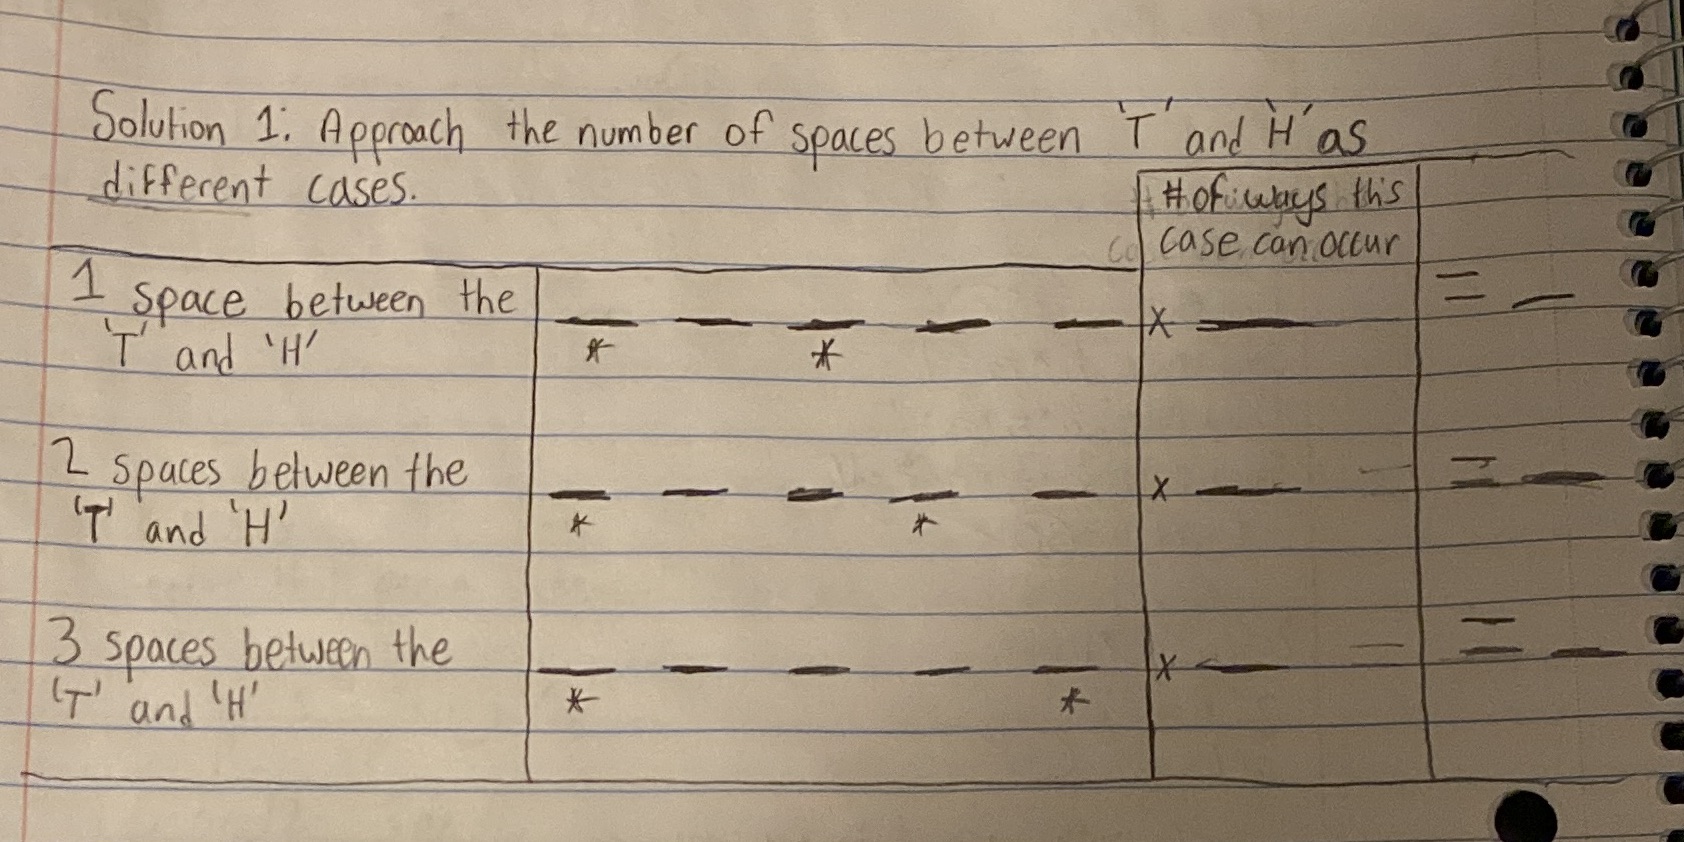 Solution 1: Approach the number of spaces between 'T' and 'H' as
different cases.
# of ways this
case can occur
1 space between the
'T' and 'H'
_ _ _ _ _ x _ = _
* *
2 spaces between the
'T' and 'H'
_ _ _ _ _ x _ = _
* *
3 spaces between the
'T' and 'H'
_ _ _ _ _ x _ = _
* *